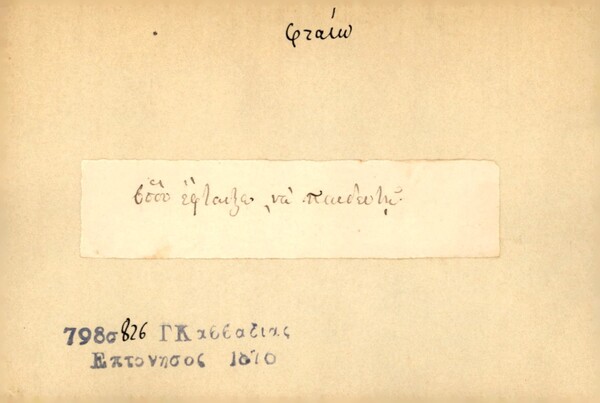 φταίω
ὅσου ἔφταιξα νὰ παιδευτῇ
798σ 826 ΓΚαββαδιας
Επτονησος 1870